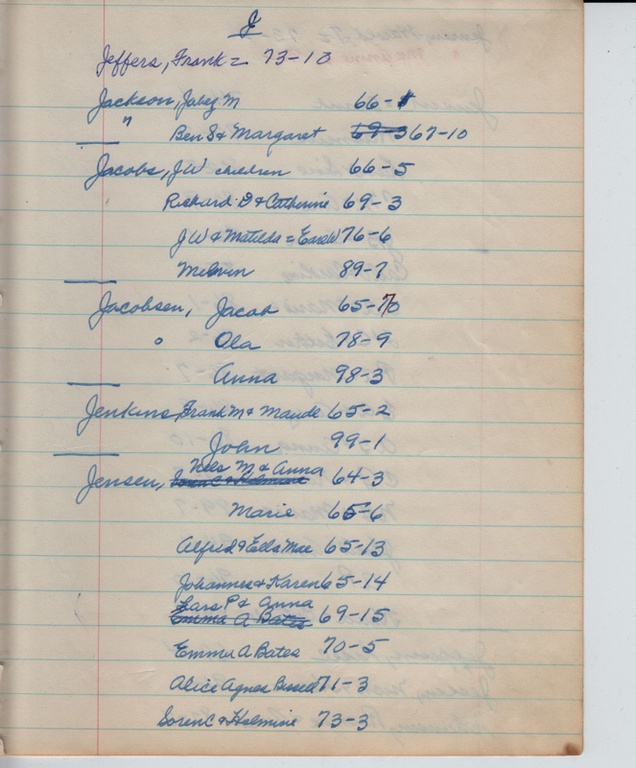 J
Jeffers, Frank = 73-10
Jackson, Jabez M 66-1
" Ben S & Margaret 69-3 67-10
Jacobs, J W children 66-5
Richard D & Catherine 69-3
J W & Matilda = 76-6
Melvin 89-7
Jacobsen, Jacob 65-70
Ola 78-9
Anna 98-3
Jenkins, Frank M & Maude 65-2
John 99-1
Nels M & Anna
Jensen, Soren C & Holmine 64-3
Marie 65-6
Alfred & Ella Mae 65-13
Johannes & Karen 65-14
Lars P & Anna
Emma A Bates 69-15
Emma A Bates 70-5
Alice Agnes 71-3
Soren C & Holmine 73-3